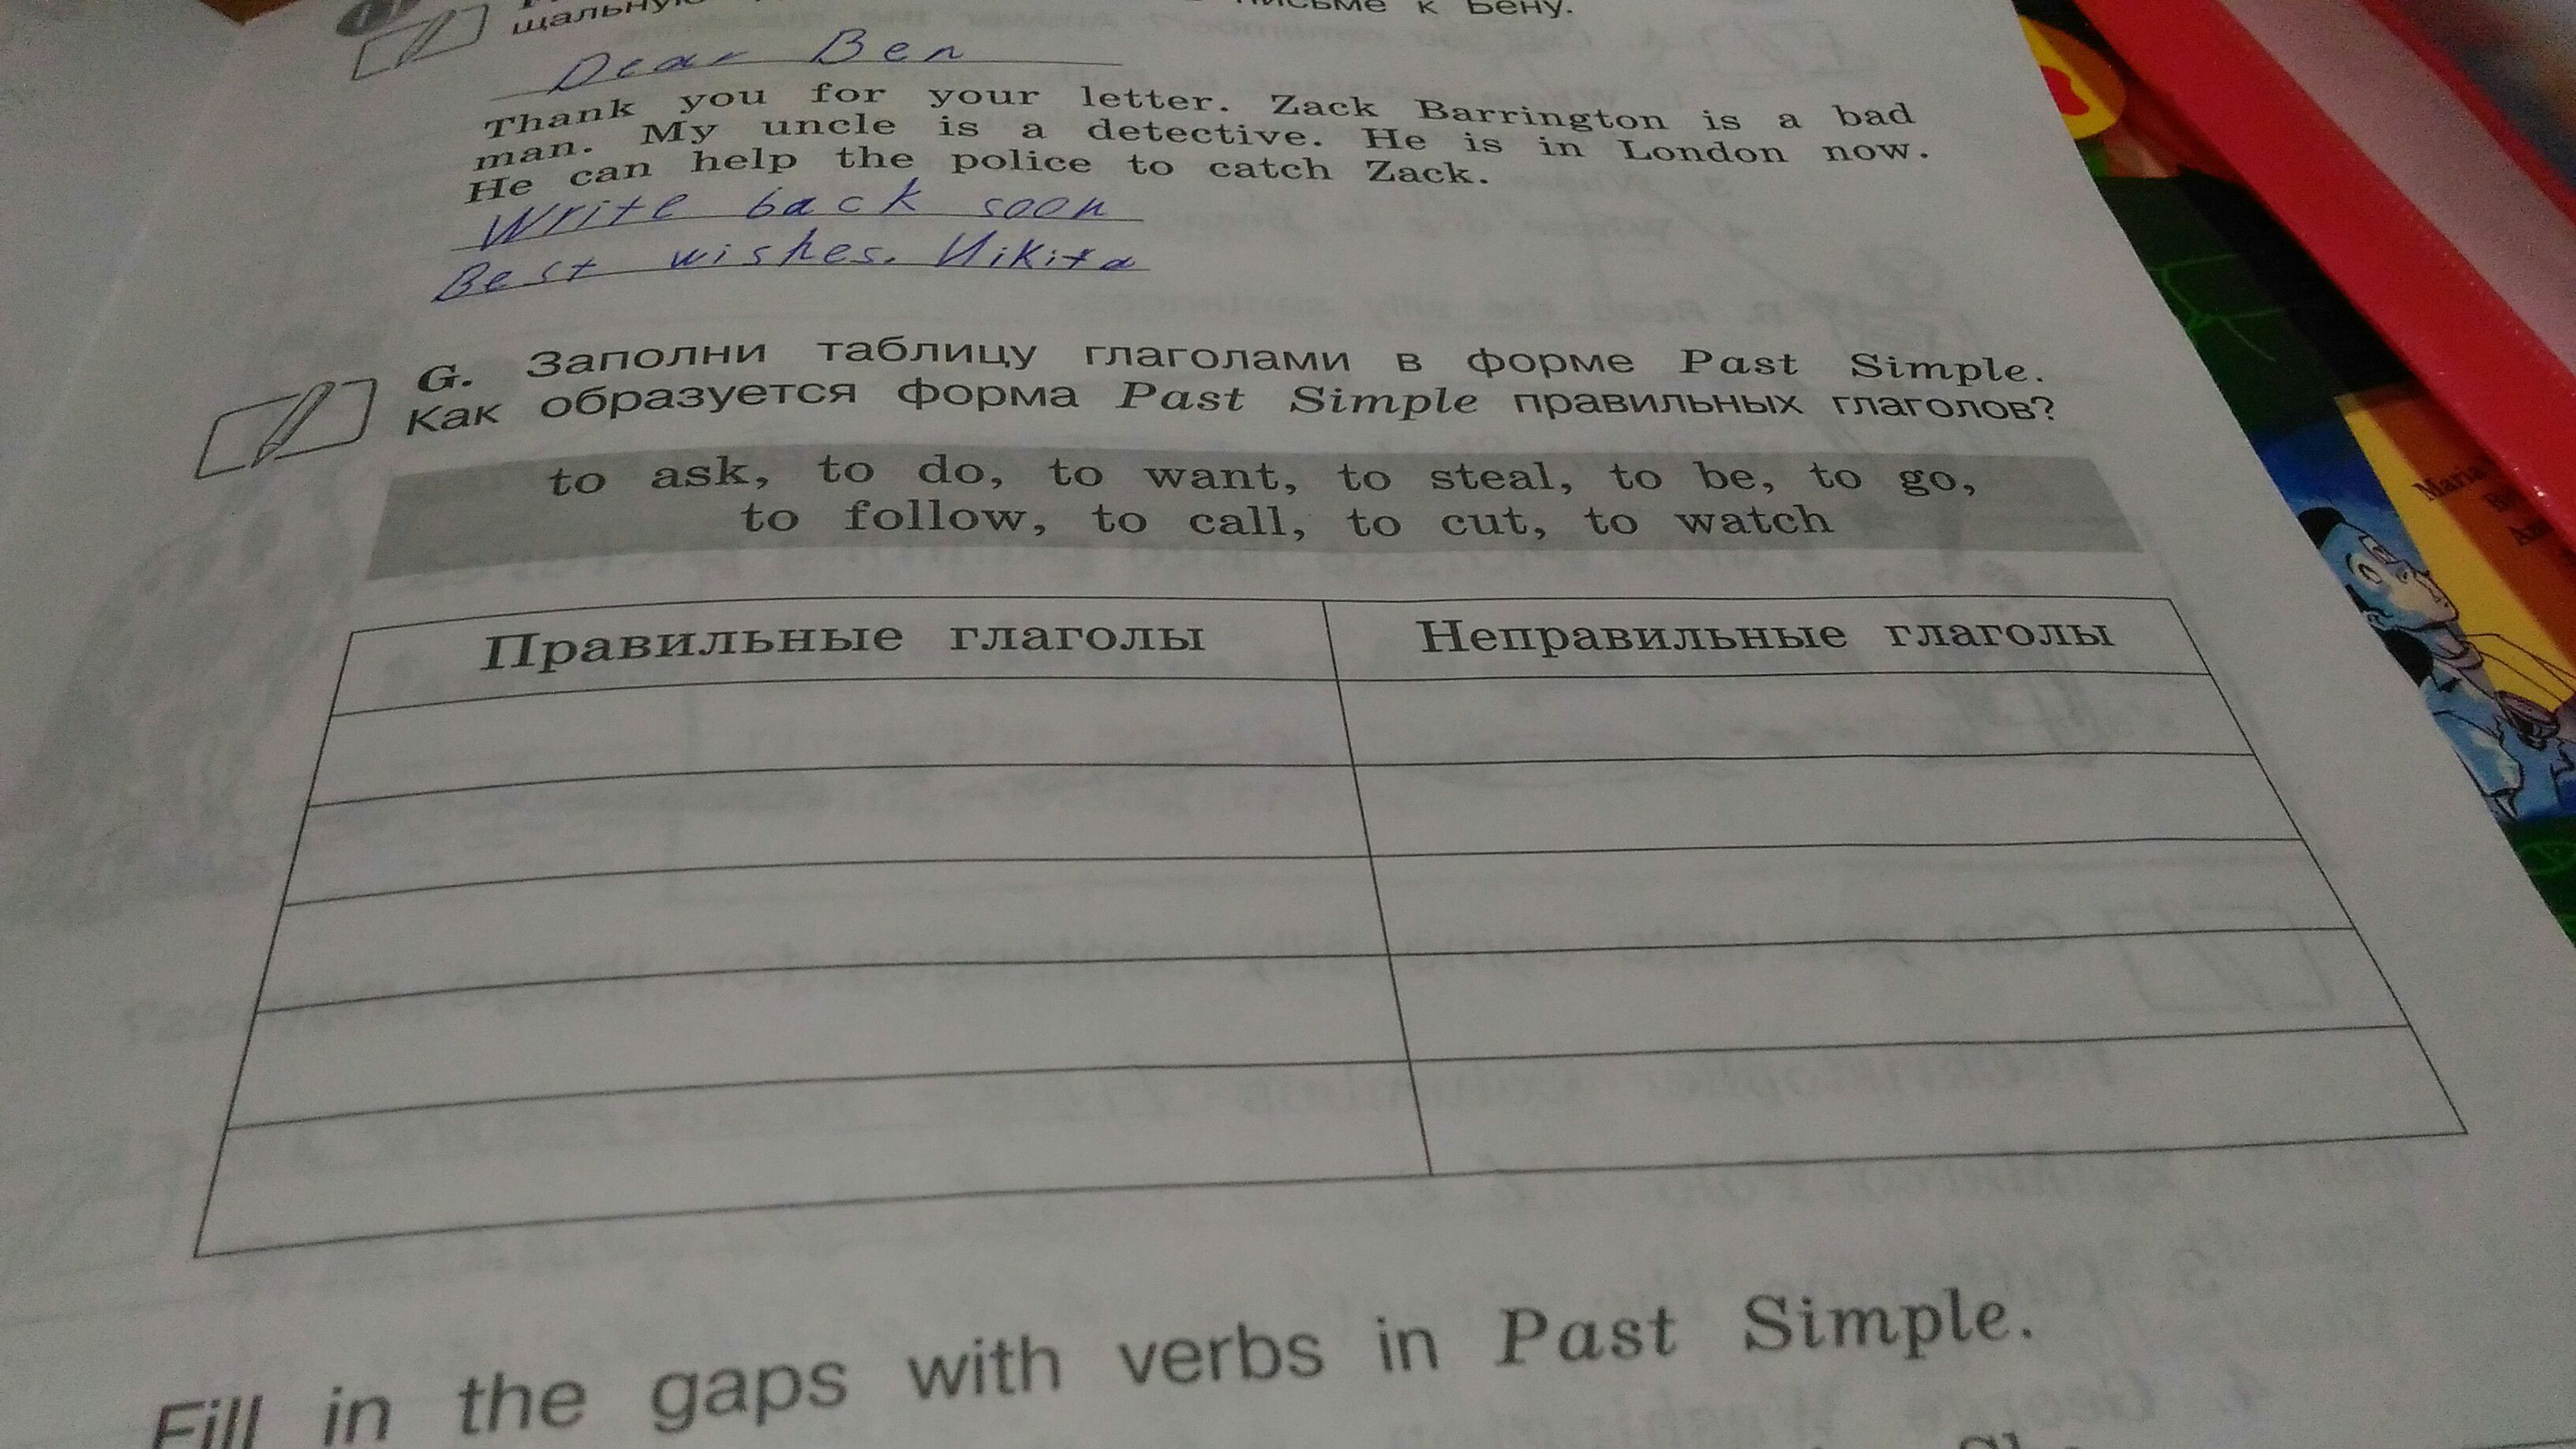 щальную
письме к Бену.
Dear Ben
Thank you for your letter. Zack Barrington is a bad
man. My uncle is a detective. He is in London now.
He can help the police to catch Zack.
Write back soon
Best wishes. Nikita
G. Заполни таблицу глаголами в форме Past Simple.
Как образуется форма Past Simple правильных глаголов?
to ask, to do, to want, to steal, to be, to go,
to follow, to call, to cut, to watch
Правильные глаголы Неправильные глаголы
Fill in the gaps with verbs in Past Simple.
Maria